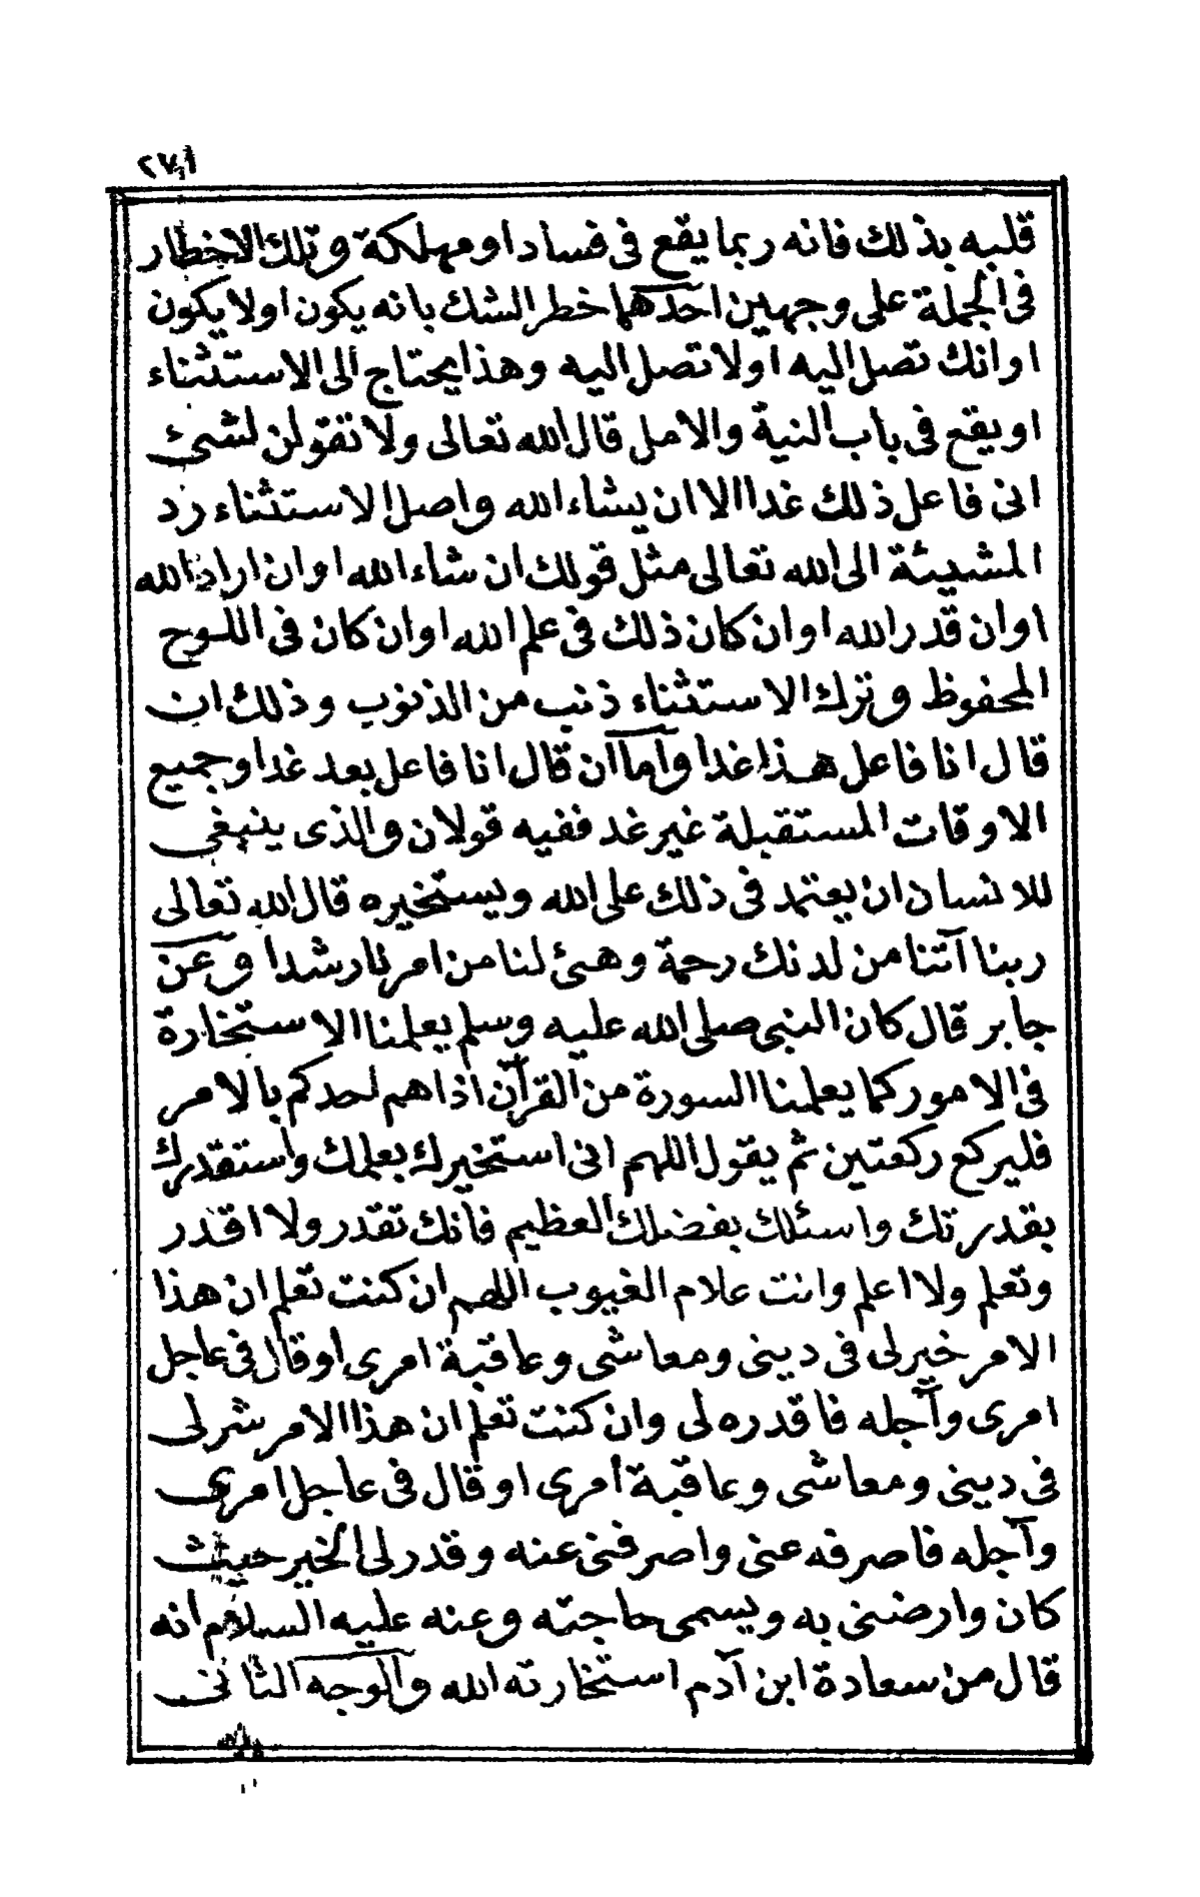 ٢٧١
قلبه بذلك فانه ربما يقع فى فساد او مهلكة وتلك الاخطار
فى الجملة على وجهين احدهما خطر الشك بانه يكون اولا يكون
اوانك تصل اليه اولا تصل اليه وهذا يحتاج الى الاستثناء
اويقع فى باب النية والامل قال الله تعالى ولا تقولن لشئ
انى فاعل ذلك غدا الا ان يشاء الله واصل الاستثناء رد
المشيئة الى الله تعالى مثل قولك ان شاء الله اوان اراد الله
اوان قدر الله اوان كان ذلك فى علم الله اوان كان فى اللوح
المحفوظ وترك الاستثناء ذنب من الذنوب وذلك ان
قال انا فاعل هذا غدا واما ان قال انا فاعل بعد غد اوجميع
الاوقات المستقبلة غير غد ففيه قولان والذى ينبغى
للانسان ان يعتمد فى ذلك على الله ويستخيره قال الله تعالى
ربنا آتنا من لدنك رحمة وهيئ لنا من امرنا رشدا وعن
جابر قال كان النبى صلى الله عليه وسلم يعلمنا الاستخارة
فى الامور كما يعلمنا السورة من القرآن اذا هم احدكم بالامر
فليركع ركعتين ثم يقول اللهم انى استخيرك بعلمك واستقدرك
بقدرتك واسئلك بفضلك العظيم فانك تقدر ولا اقدر
وتعلم ولا اعلم وانت علام الغيوب اللهم ان كنت تعلم ان هذا
الامر خير لى فى دينى ومعاشى وعاقبة امرى اوقال فى عاجل
امرى وآجله فاقدره لى وان كنت تعلم ان هذا الامر شر لى
فى دينى ومعاشى وعاقبة أمرى اوقال فى عاجل امرى
وآجله فاصرفه عنى واصرفنى عنه وقدر لى الخير حيث
كان وارضنى به ويسمى حاجته وعنه عليه السلام انه
قال من سعادة ابن آدم استخارته الله والوجه الثانى